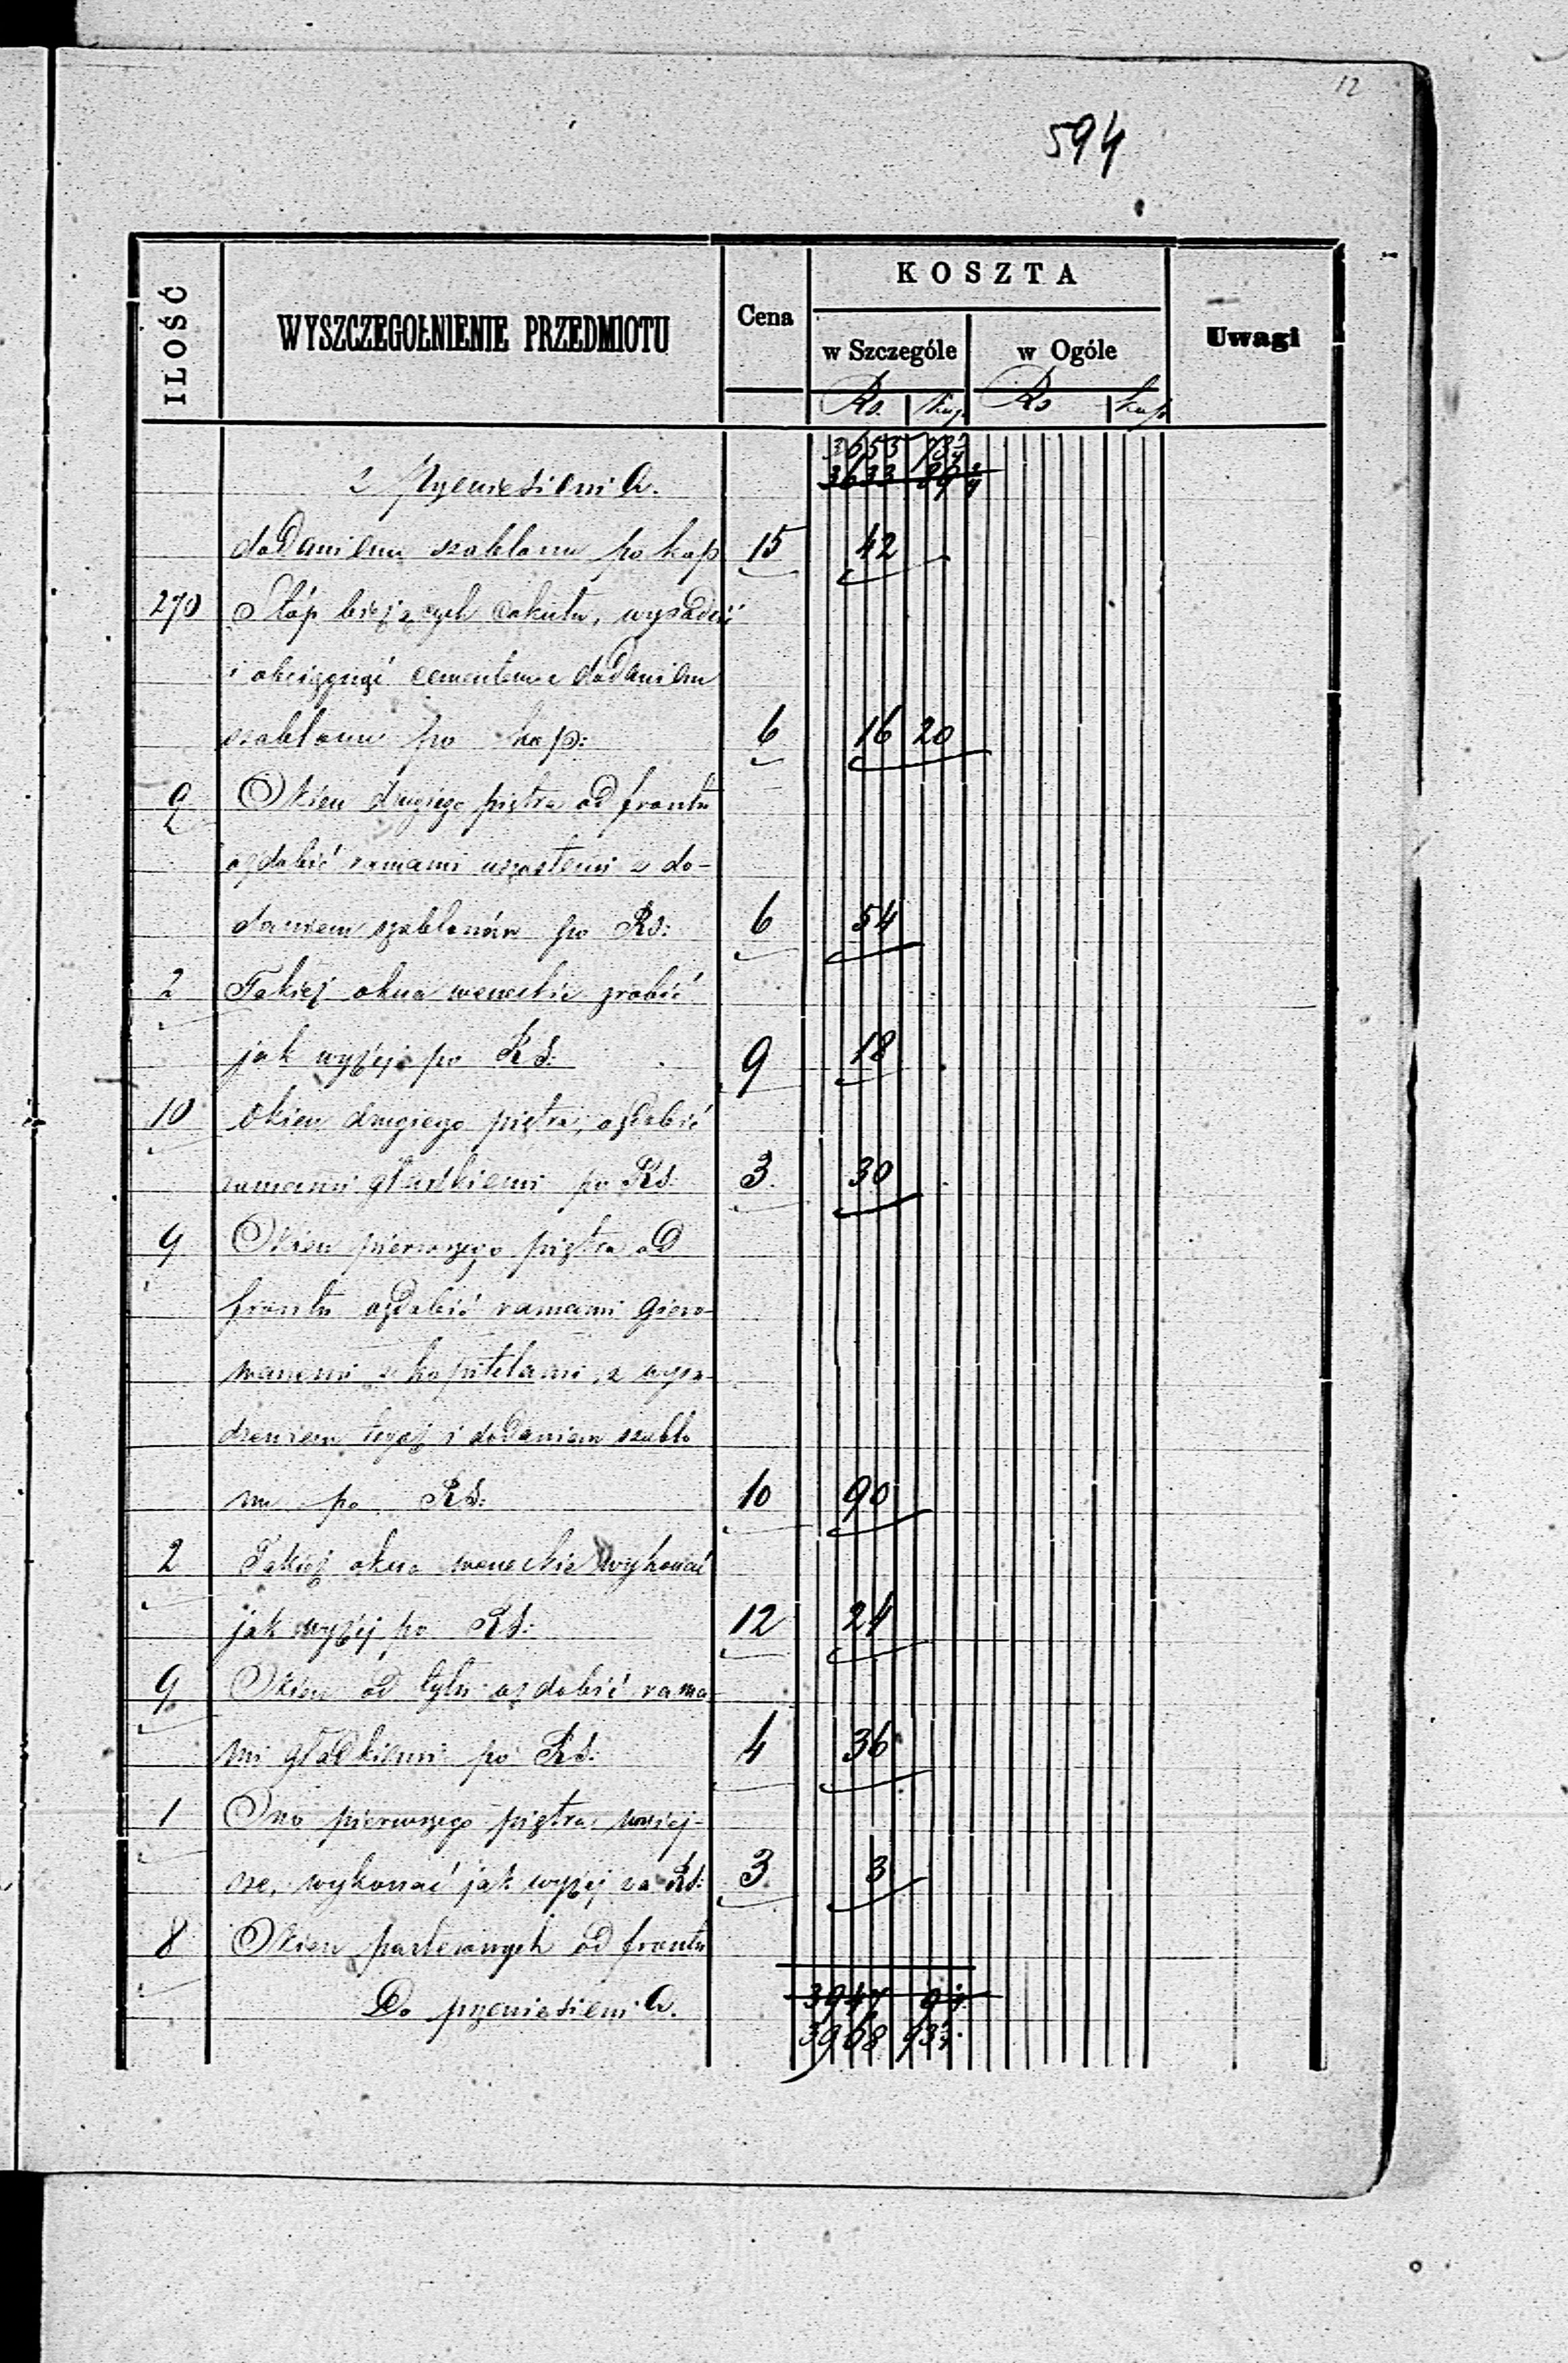 12
594
ILOŚĆ WYSZCZEGOŁNIENIE PRZEDMIOTU Cena KOSZTA Uwagi
w Szczególe w Ogóle
Rs. kop Rs kop
3653
z Przeniesienia. 3633
dodaniem szablonu po kop 15 42
270 Stóp bieżących cokułu, wysadzić
i obciągnąć cementem z dodaniem
szablonu po kop: 6 16 20
9 Okien drugiego piętra od frontu
ozdobić ramami uszastemi z do-
daniem szablonów po Rs: 6 54
2 Takież okna weneckie zrobić
jak wyżej po Rs: 9 18
10 Okien drugiego piętra, ozdobić
ramami gładkiemi po Rs. 3. 30
9 Okien pierwszego piętra od
frontu ozdobić ramami giero-
wanemi z kapitelami, z wysa-
dzeniem tegoż i dodaniem szablo
nu po Rs: 10 90
2 Takież okna weneckie wykonać
jak wyżej po Rs: 12 24
9 Okien od tyłu ozdobić rama
mi gładkiemi po Rs: 4 36
1 Ono pierwszego piętra, mniej-
sze, wykonać jak wyżej za Rs: 3. 3
8 Okien parterowych od frontu
Do przeniesienia. 3947
3968